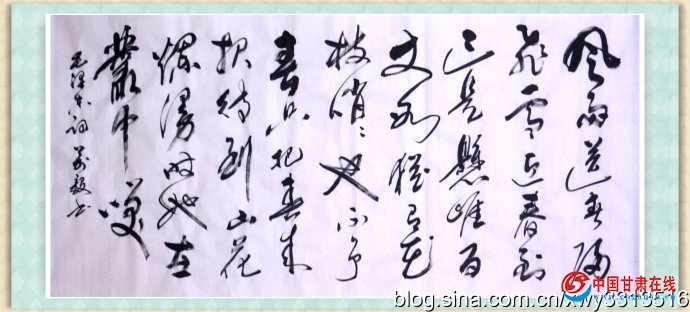 风雨送春归
飞雪迎春到
已是懸崖百
丈冰猶有花
枝俏々也不争
春只把春来
报待到山花
烂漫时她在
叢中笑
毛泽东词 毅书
中国甘肃在线
blog.sina.com.cn/xwy3313516